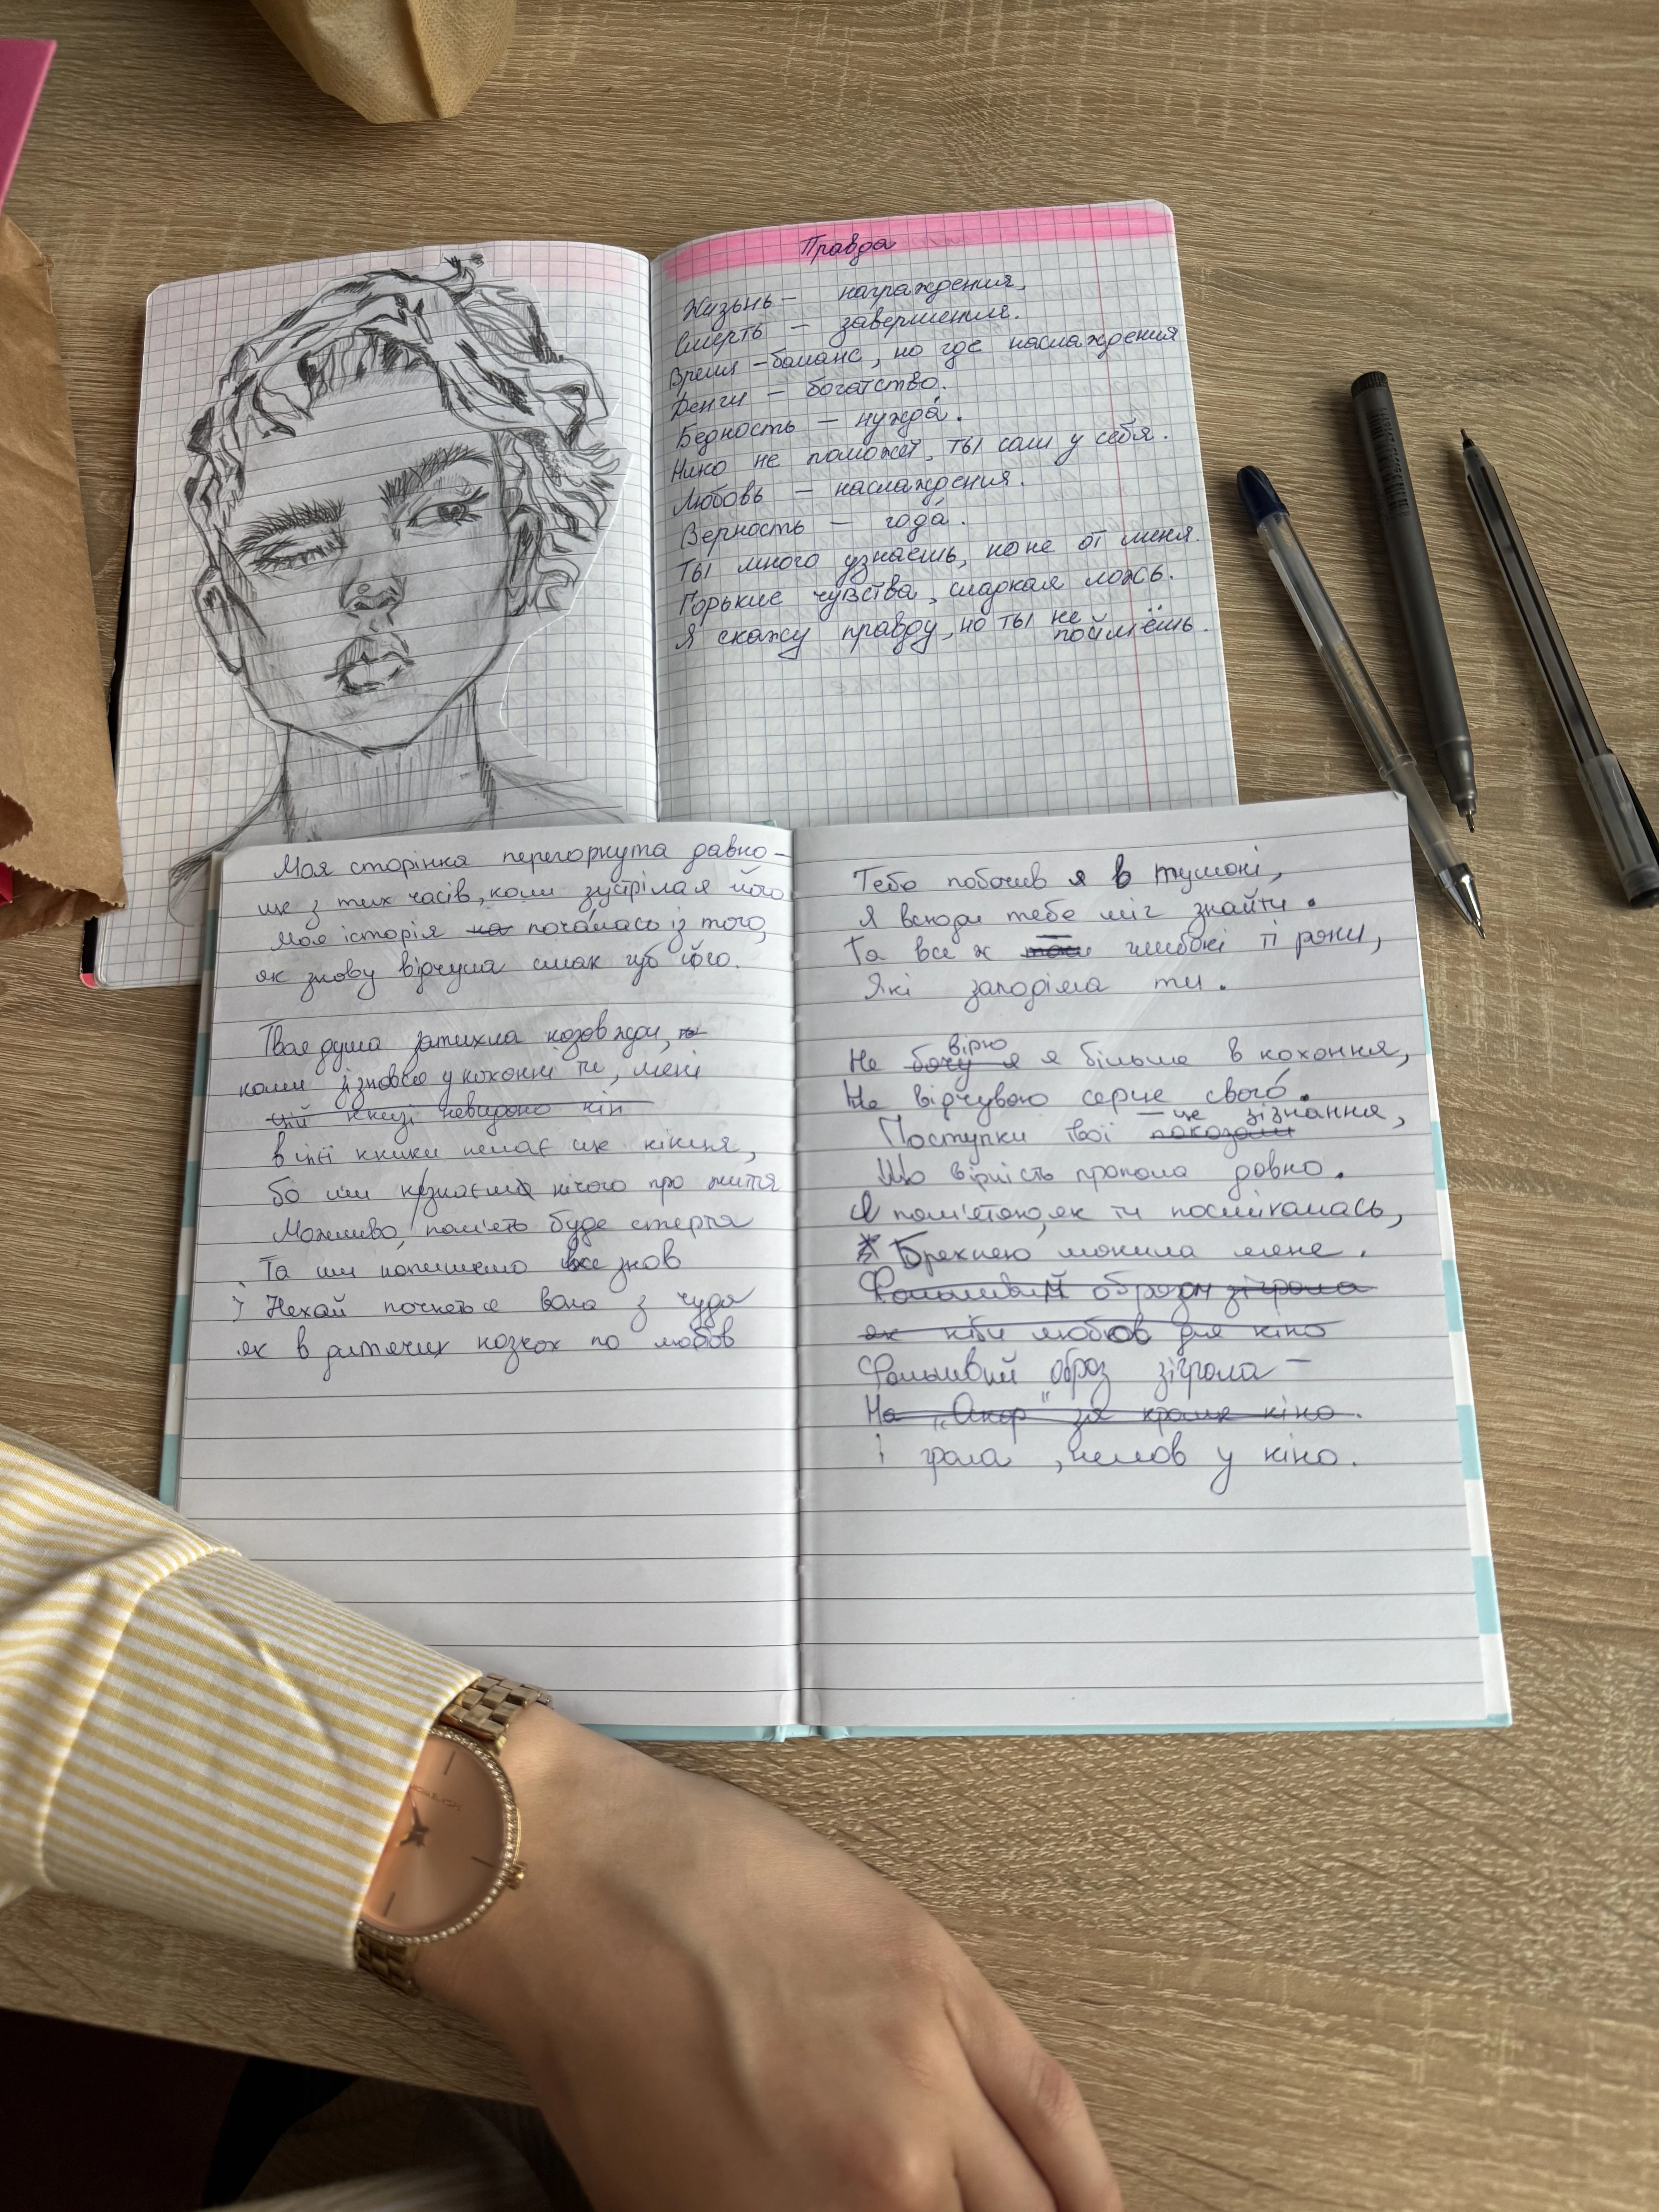 Правда
Жизьнь – награждения,
Смерть – завершение.
Время – баланс, но где наслаждения
Денги – богатство.
Бедность – нужда́.
Нико не поможет, ты сам у себя.
Любовь – наслаждения.
Верность – года́.
Ты много узнаешь, но не от меня.
Горькие чувства, сладкая ложь.
Я скажу правду, но ты не
поймёшь.
Моя сторінка перегорнута давно –
ще з тих часів, коли зустріла я його
Моя історія на поча́лась із того,
як знову відчула смак губ його.
Твоя душа затихла назавжди,
коли зізнався у коханні ти, мені
цій книзі невидано кін
в цієї книги немає ще кінця,
бо ми незнаємо нічого про життя
Можливо, пам'ять буде стерта
Та ми напишемо все знов
І Нехай почнеться вона з чуда
як в дитячих казках по любов
Тебе побачив я в тумані,
Я всюди тебе міг знайти.
Та все ж глибокі ті рани,
Які заподіяла ти.
вірю
Не бачу я я більше в кохання,
Не відчуваю серце свого́.
– це зізнання,
Поступки твої показали
Що вірність пропала давно.
Я пам'ятаю, як ти посміхалась,
Брехнею манила мене.
Фальшивий образ зіграла
як ніби любов для кіно
Фальшивий образ зіграла –
На "Оскар" кіно.
І грала, немов у кіно.